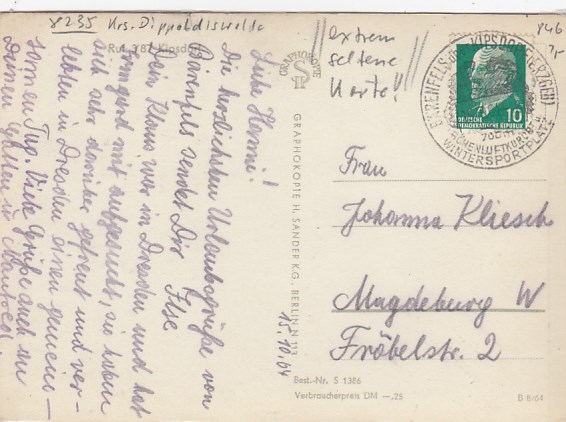 8235 Krs. Dippoldiswalde
Ruf 387 Kipsdorf
extrem
seltene
Karte!!
846
7,-
GRAPHOKOPIE
Liebe Hanni!
Die herzlichsten Urlaubsgrüße von
Bärenfels sendet Dir Ilse
Dein Klaus war in Dresden und hat
Irmgard mit aufgesucht, sie haben
sich sehr darüber gefreut und ver-
lebten in Dresden einen gemein-
samen Tag. Viele Grüße auch an
Deinen Gatten u.
15.10.64
GRAPHOKOPIE H. SANDER K.G., BERLIN N 113
BÄRENFELS KIPSDORF (ERZGEB)
HÖHENLUFTKURORT U.
WINTERSPORTPLATZ
10
DEUTSCHE
DEMOKRATISCHE REPUBLIK
Frau
Johanna Kliesch
Magdeburg W
Fröbelstr. 2
Best.-Nr. S 1386
Verbraucherpreis DM —,25
B 8/64